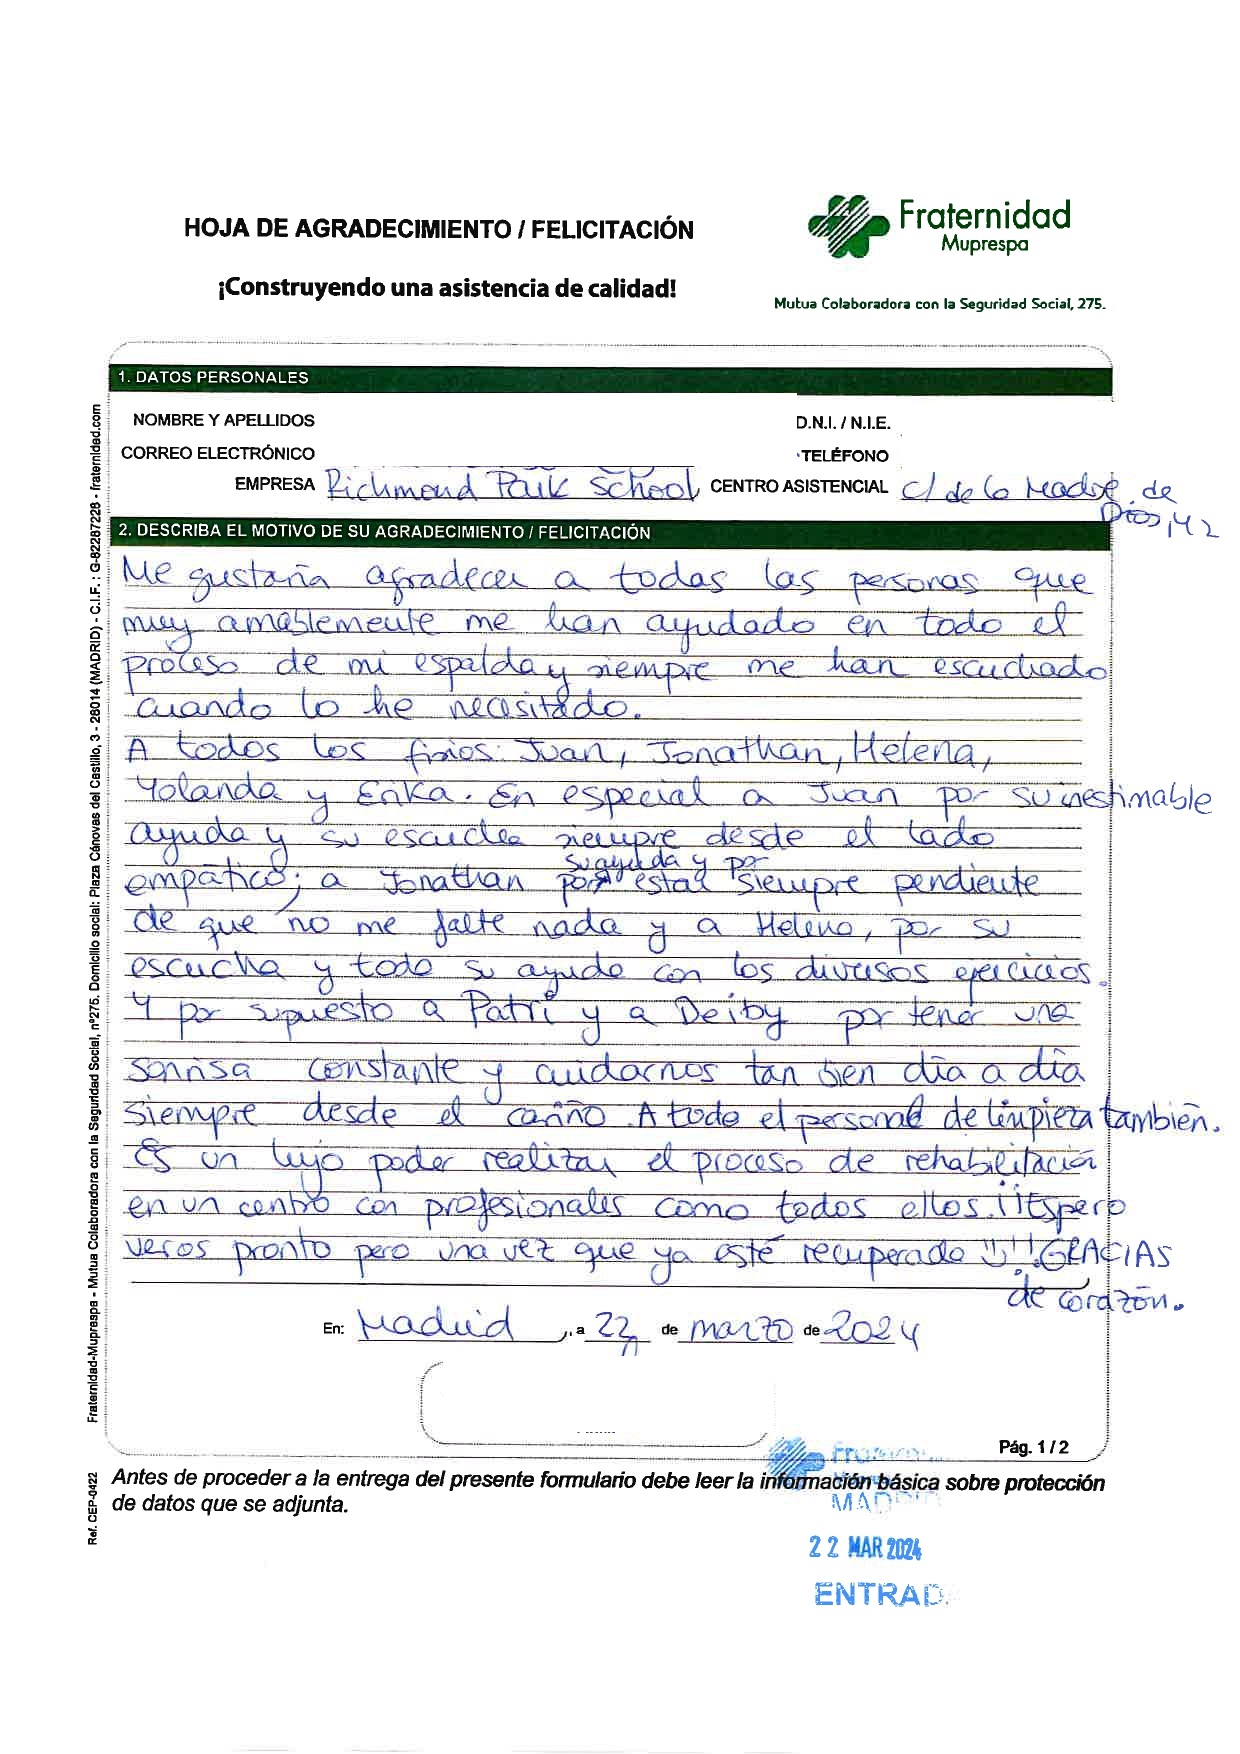 HOJA DE AGRADECIMIENTO / FELICITACIÓN
¡Construyendo una asistencia de calidad!
Fraternidad
Muprespa
Mutua Colaboradora con la Seguridad Social, 275.
1. DATOS PERSONALES
NOMBRE Y APELLIDOS
D.N.I. / N.I.E.
CORREO ELECTRÓNICO
TELÉFONO
EMPRESA Richmond Park School CENTRO ASISTENCIAL c/ de la Madre de
Dios, 42
2. DESCRIBA EL MOTIVO DE SU AGRADECIMIENTO / FELICITACIÓN
Me gustaría agradecer a todas las personas que
muy amablemente me han ayudado en todo el
proceso de mi espalda y siempre me han escuchado
cuando lo he necesitado.
A todos los fisios: Juan, Jonathan, Helena,
Yolanda y Erika. En especial a Juan por su inestimable
ayuda y su escucha siempre desde el lado
su ayuda y por
empático; a Jonathan por estar siempre pendiente
de que no me falte nada y a Helena, por su
escucha y toda su ayuda con los diversos ejercicios.
Y por supuesto a Patri y a Deiby por tener una
sonrisa constante y cuidarnos tan bien día a día
siempre desde el cariño. A todo el personal de limpieza también.
Es un lujo poder realizar el proceso de rehabilitación
en un centro con profesionales como todos ellos. ¡¡Espero
veros pronto pero una vez que ya esté recuperada!! GRACIAS
de corazón.
En: Madrid, a 22 de marzo de 2024
Pág. 1 / 2
Antes de proceder a la entrega del presente formulario debe leer la información básica sobre protección
de datos que se adjunta.
22 MAR 2024
Fraternidad-Muprespa - Mutua Colaboradora con la Seguridad Social, nº275. Domicilio social: Plaza Cánovas del Castillo, 3 - 28014 (MADRID) - C.I.F. : G-82287228 - fraternidad.com
Ref. CEP-0422